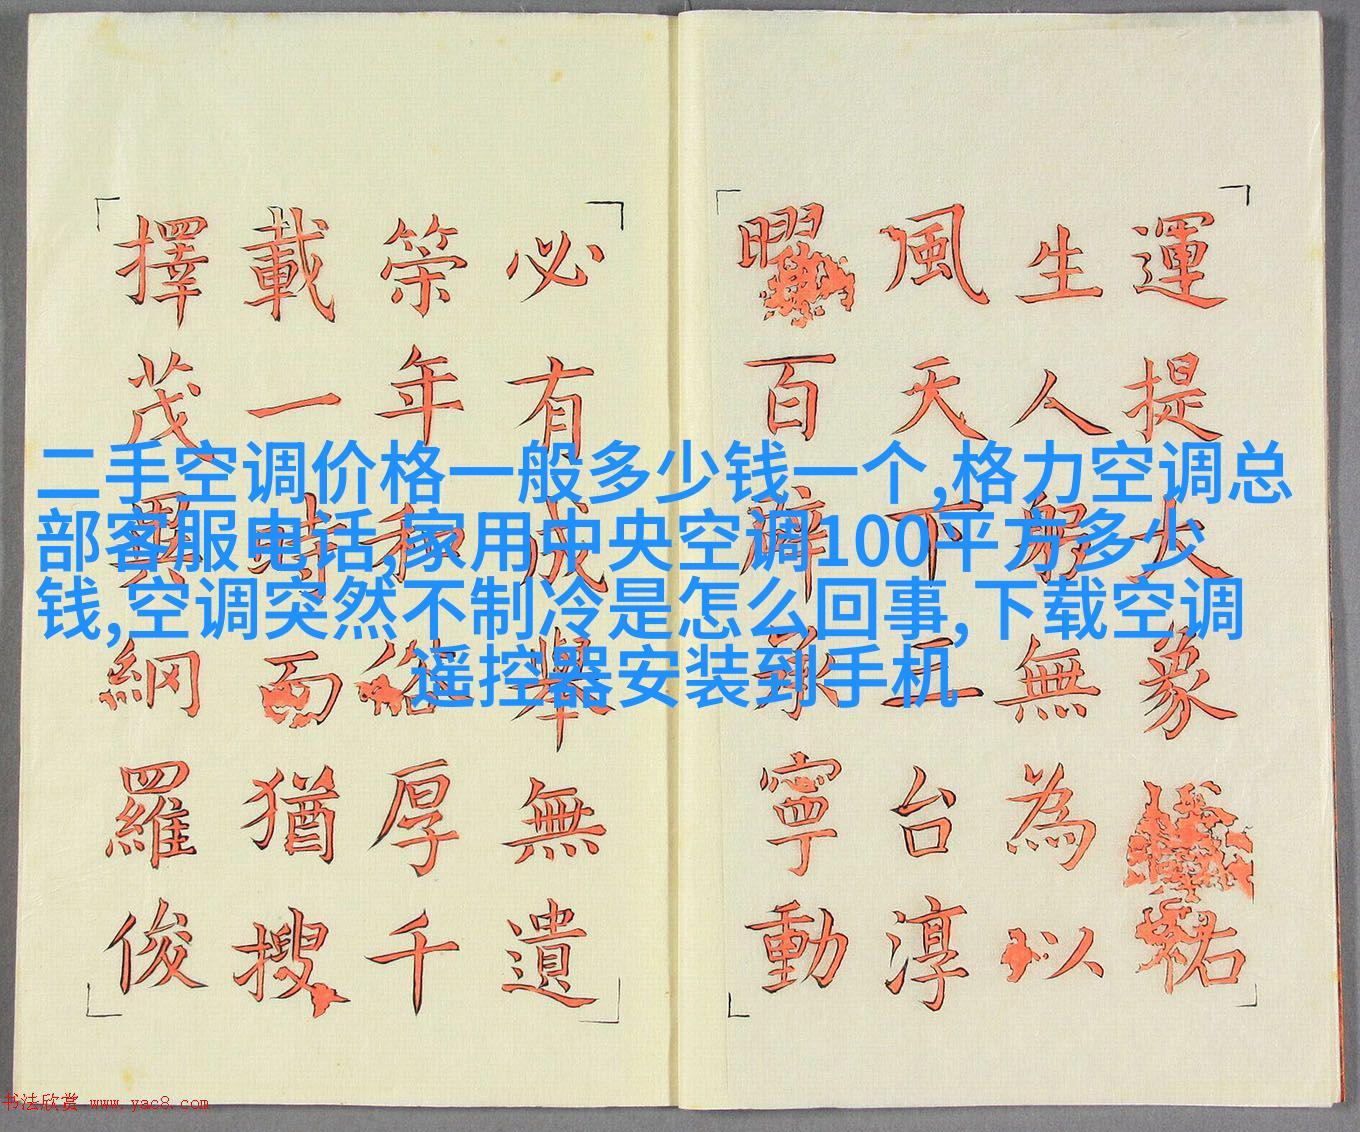 二手空调价格一般多少钱一个,格力空调总
部客服电话,家用中央空调100平方多少
钱,空调突然不制冷是怎么回事,下载空调
遥控器安装到手机
運提大象祐
生人躬無為以
風天下三台淳
曜百辟承寧動
必有成舉無遺
筞年和俗厚千
載一時而猶搜
擇茂異網羅俊
书法欣赏 www.yac8.com